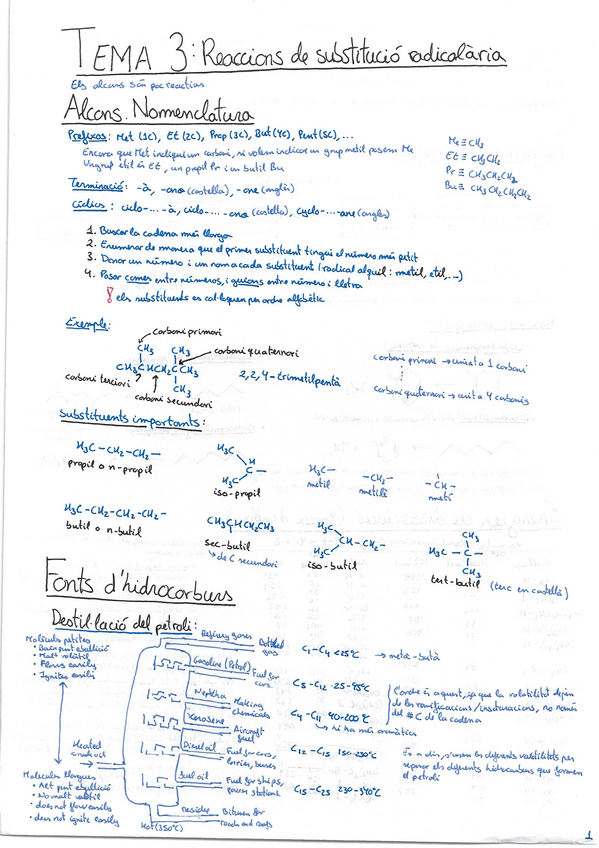 TEMA 3: Reaccions de substitució radicalària
Els alcans són poc reactius
Alcans. Nomenclatura
Prefixos: Met (1C), Et (2C), Prop (3C), But (4C), Pent (5C), ...
Encara que Met indiqui un carboni, si volem indicar un grup metil posem Me
Un grup etil és Et, un propil Pr i un butil Bu
Me ≡ CH3
Et ≡ CH2CH3
Pr ≡ CH2CH2CH3
Bu ≡ CH2CH2CH2CH3
Terminació: -à, -ano (castellà), -ane (anglès)
Cíclics: ciclo-...-à, ciclo-...-ano (castellà), cyclo-...-ane (anglès)
1. Buscar la cadena més llarga
2. Enumerar de manera que el primer substituent tingui el número més petit
3. Donar un número i un nom a cada substituent (radical alquil: metil, etil, ...)
4. Posar comes entre números, i guions entre número i lletra
! els substituents es col·loquen per ordre alfabètic
Exemple:
carboni primari
CH3 CH3
carboni quaternari
CH3CHCH2CCH3
carboni terciari
CH3
carboni secundari
2,2,4-trimetilpentà
carboni primari → unit a 1 carboni
carboni quaternari → unit a 4 carbonis
Substituents importants:
H3C-CH2-CH2-
propil o n-propil
H3C
H
C-
H3C
iso-propil
H3C-
metil
-CH2-
metilè
-CH-
metí
H3C-CH2-CH2-CH2-
butil o n-butil
CH3CHCH2CH3
sec-butil
→ de C secundari
H3C
CH-CH2-
H3C
iso-butil
CH3
H3C-C-
CH3
tert-butil (terc en castellà)
Fonts d'hidrocarburs
Destil·lació del petroli:
Molècules petites
• Baix punt ebullició
• Molt volàtil
• Flows easily
• Ignites easily
Heated
crude oil
Molècules llargues
• Alt punt ebullició
• No molt volàtil
• does not flow easily
• does not ignite easily
Refinery gases
Bottled
gas
Gasoline (Petrol)
Fuel for
cars
Naphtha
Making
chemicals
Kerosene
Aircraft
fuel
Diesel oil
Fuel for cars,
lorries, buses
Fuel oil
Fuel for ships,
power stations
Residue
Bitumen for
roads and roofs
Hot (350°C)
C1-C4 <25°C → metà-butà
C5-C12 25-95°C
C4-C11 40-200°C
→ hi ha més aromàtics
C12-C15 150-230°C
C15-C25 230-340°C
L'ordre és aquest, ja que la volatilitat depèn
de les ramificacions/insaturacions, no només
del # C de la cadena
És a dir, s'usen les diferents volatilitats per
separar els diferents hidrocarburs que formen
el petroli
1